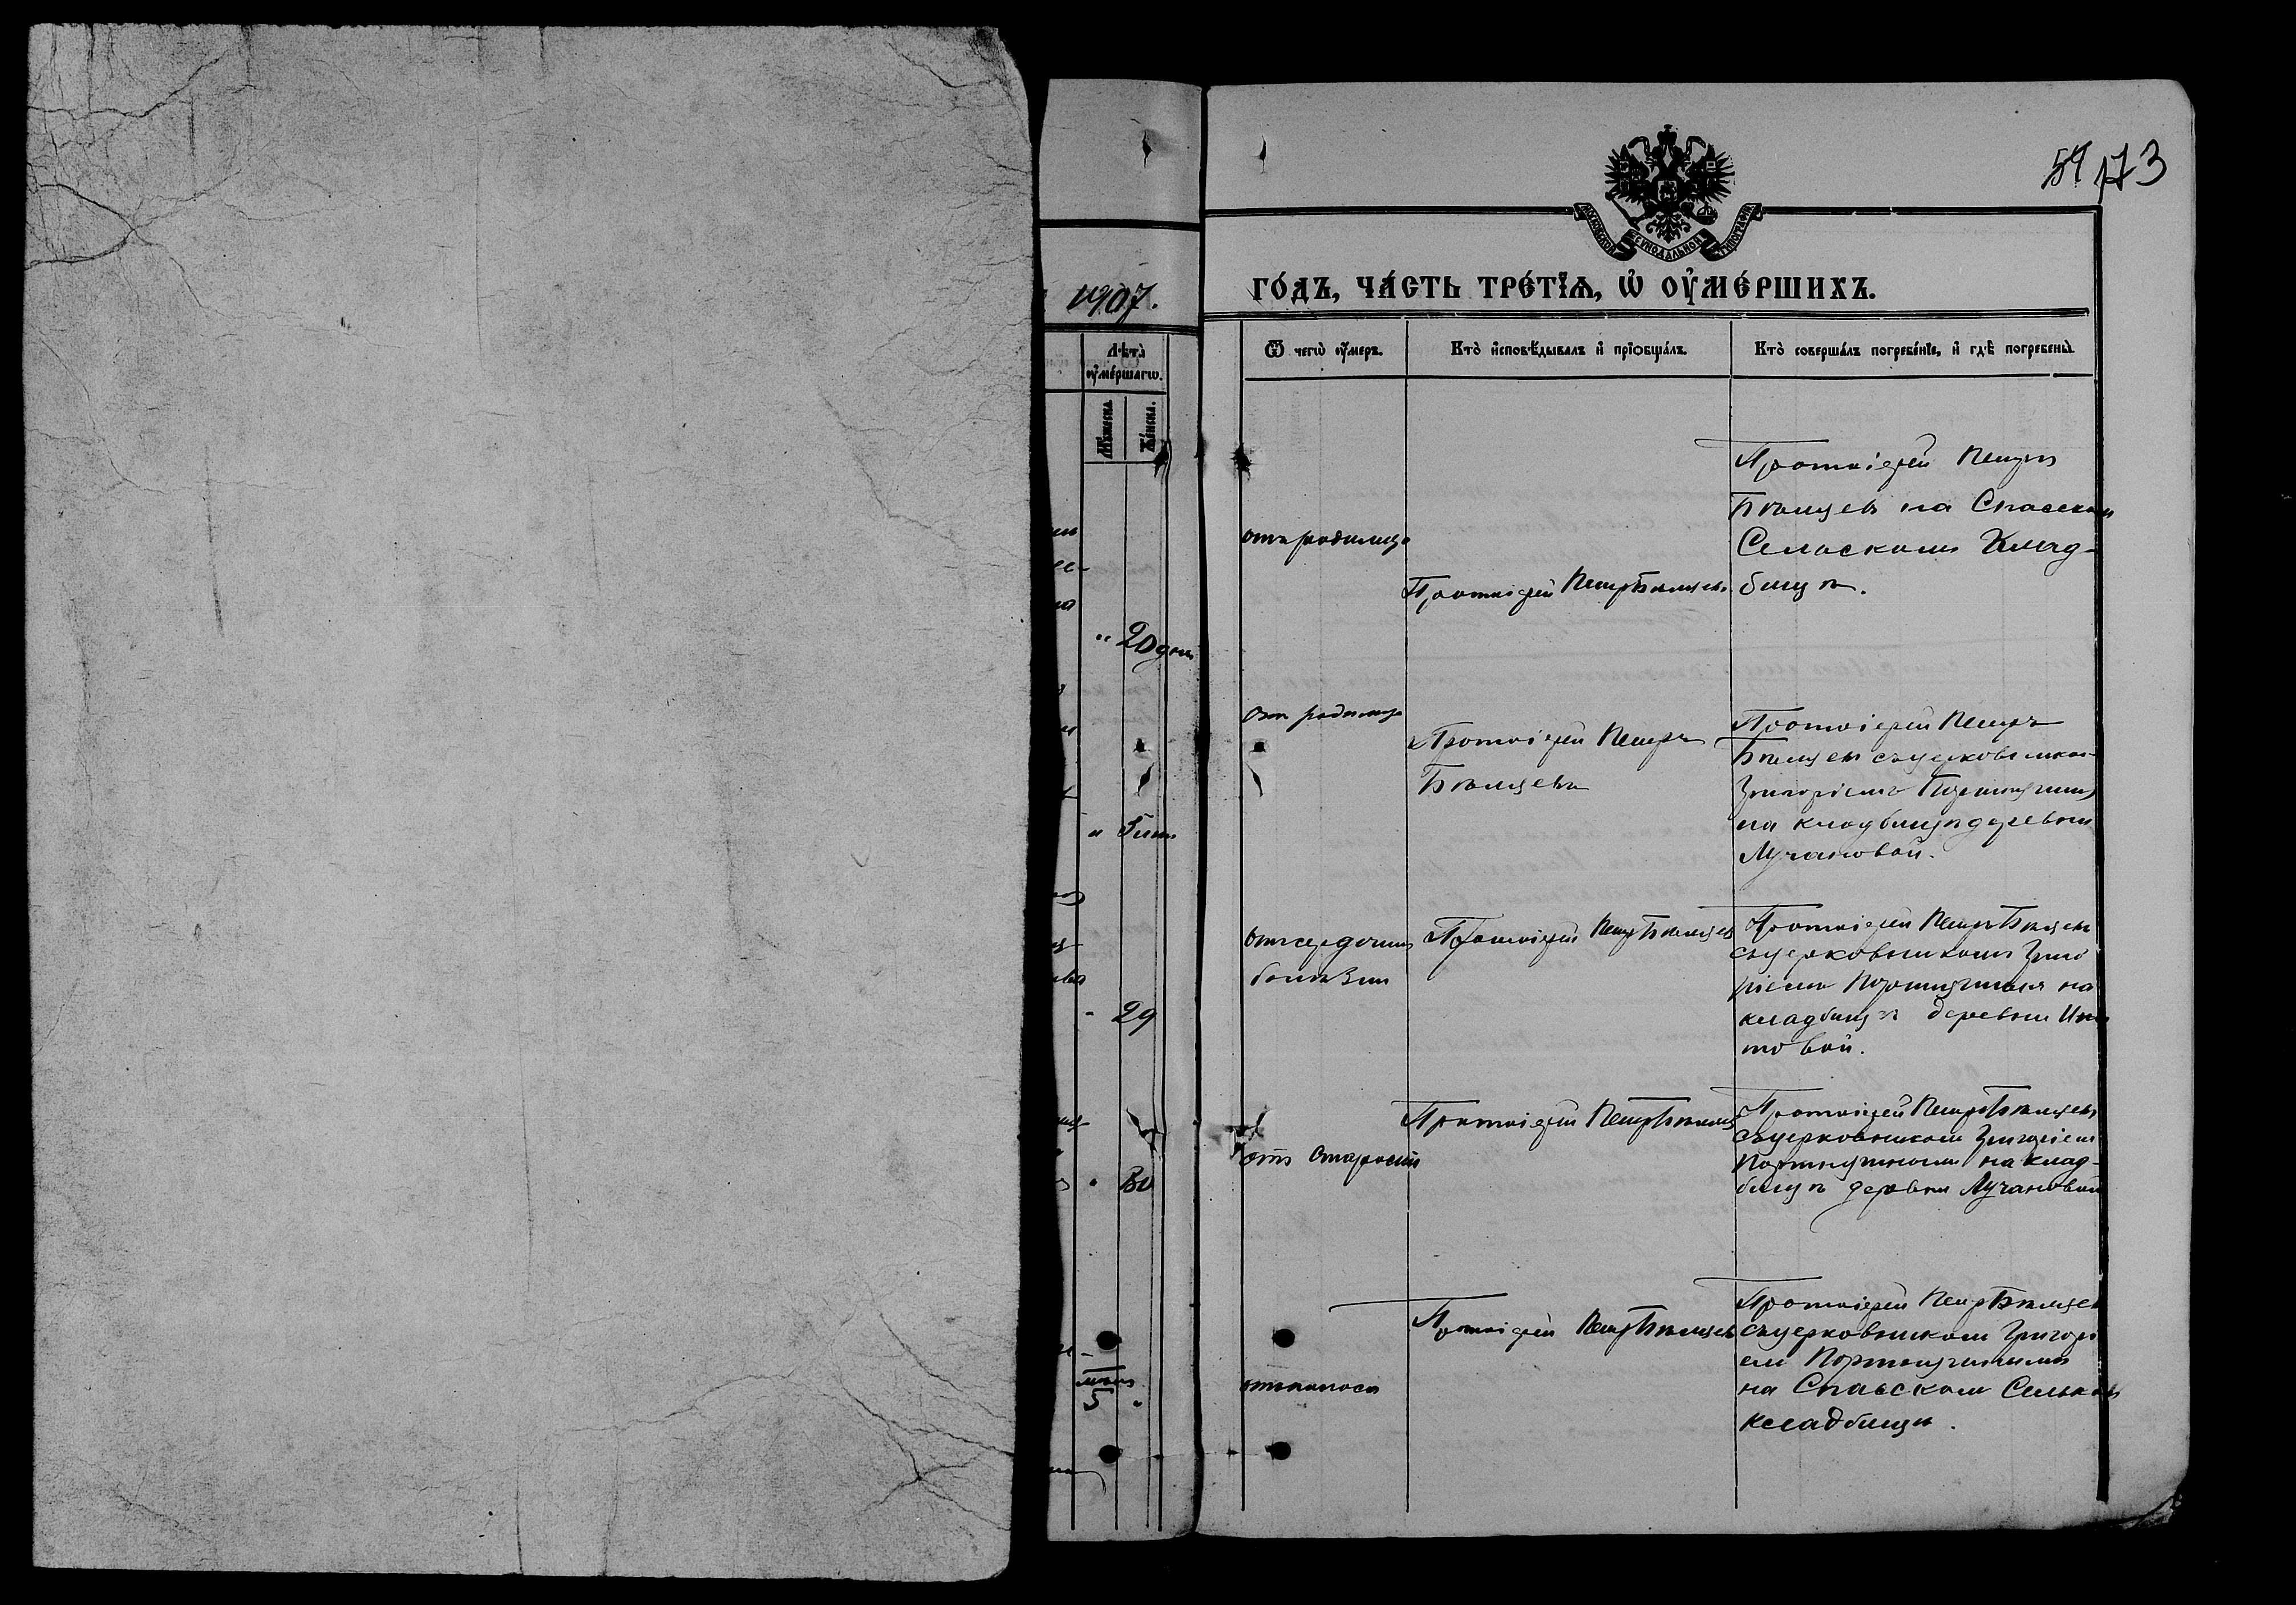 173
МОСКОВСКОЙ СѴНОДАЛЬНОЙ ТИПОГРАФІИ
1907.
ГО́ДЪ, ЧА́СТЬ ТРЕ́ТІѦ, Ѡ҆ ОУ҆МЕ́РШИХЪ.
Лѣ́та
оу҆ме́ршагѡ.
Мꙋ́жеска.
Же́нска.
Ѿ чегѡ̀ оу҆́меръ.
Кто̀ и҆сповѣ́дывалъ и҆ прїѡбща́лъ.
Кто̀ соверша́лъ погребе́нїе, и҆ гдѣ̀ погребены̀.
" 20 дни
отъ родимца
Протоіерей Петръ Бѣлцевъ
Протоіерей Петръ
Бѣлцевъ на Спасскомъ
Сельскомъ Клад-
бищѣ.
отъ родимца
Протоіерей Петръ
Бѣлцевъ
Протоіерей Петръ
Бѣлцевъ съ церковникомъ
Григоріемъ
на кладбищѣ деревни
Лучановой.
" 29
отъ сердечной
болѣзни
Протоіерей Петръ Бѣлцевъ
Протоіерей Петръ Бѣлцевъ
съ церковникомъ Григо
ріемъ Портнягинымъ на
кладбищѣ деревни
товой.
" 80
отъ старости
Протоіерей Петръ Бѣлцевъ
Протоіерей Петръ Бѣлцевъ
съ церковникомъ Григоріемъ
Портнягинымъ на клад-
бищѣ деревни Лучановой
5 "
отъ поноса
Протоіерей Петръ Бѣлцевъ
Протоіерей Петръ Бѣлцевъ
съ церковникомъ Григорі
емъ Портнягинымъ
на Спасскомъ Сельскомъ
кладбищѣ.